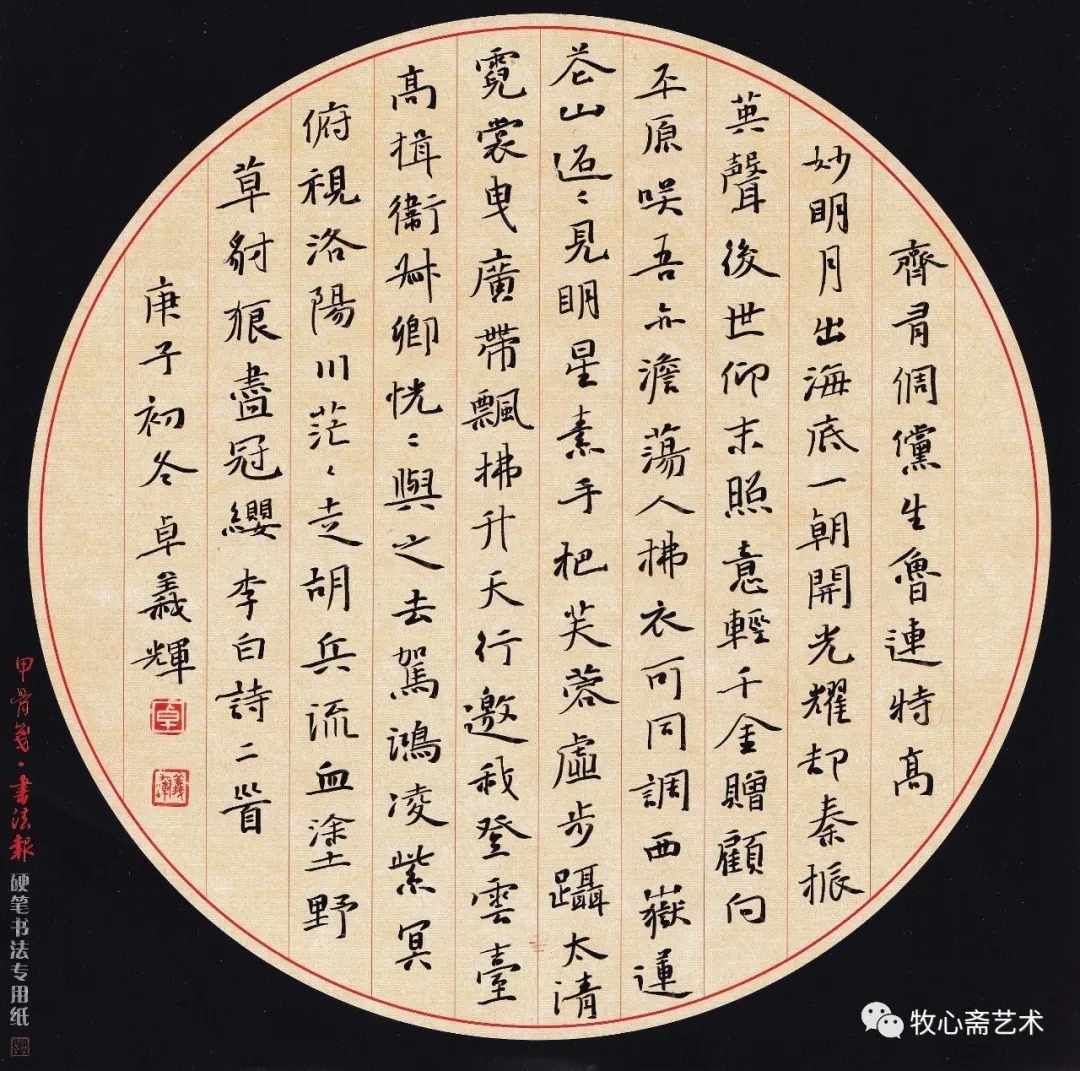 齊有倜儻生魯連特高
妙明月出海底一朝開光耀却秦振
英聲後世仰末照意輕千金贈顧向
平原咲吾亦澹蕩人拂衣可同調西嶽蓮
花山迢〻見明星素手把芙蓉虛步躡太清
霓裳曳廣帶飄拂升天行邀我登雲臺
高揖衞叔卿恍〻與之去駕鴻凌紫冥
俯視洛陽川茫〻走胡兵流血塗野
草豺狼盡冠纓 李白詩二首
庚子初冬 卓義輝
卓
義輝
甲骨箋·書法報 硬笔书法专用纸
牧心斋艺术